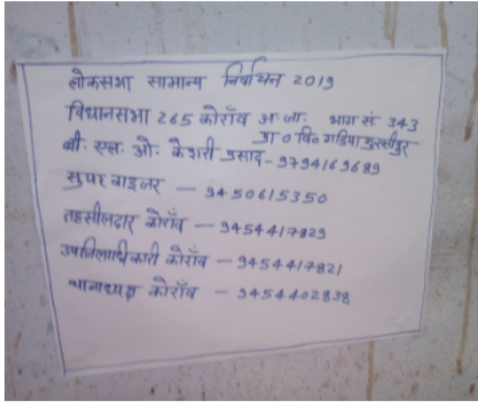 लोकसभा सामान्य निर्वाचन 2019
विधानसभा 265 कोराँव अ. जा. भाग सं. 343
प्रा० वि०
बी. एल. ओ. केशरी प्रसाद - 9794169689
सुपरवाइजर — 9450615350
तहसीलदार कोराँव — 9454417823
उपजिलाधिकारी कोराँव — 9454417821
थानाध्यक्ष कोराँव — 9454402838